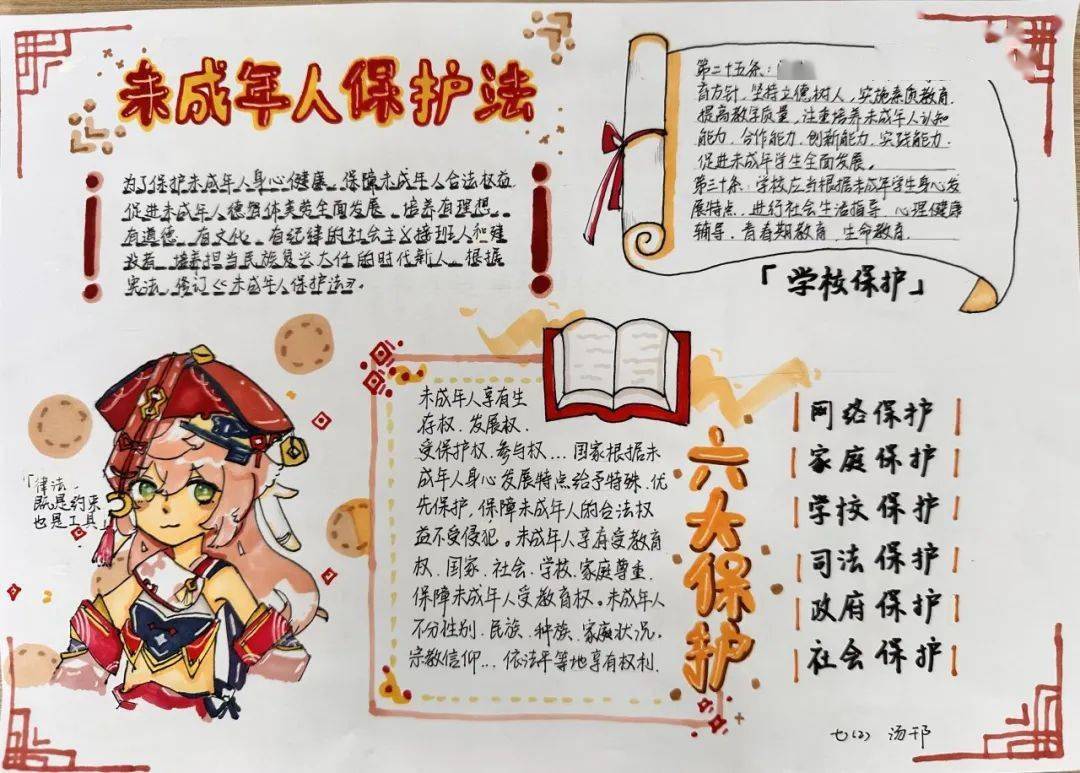 未成年人保护法
为了保护未成年人身心健康、保障未成年人合法权益
促进未成年人德智体美劳全面发展、培养有理想、
有道德、有文化、有纪律的社会主义接班人和建
设者、培养担当民族复兴大任的时代新人、根据
宪法、修订《未成年人保护法》。
第二十五条:
育方针、坚持立德树人、实施素质教育、
提高教学质量、注重培养未成年人认知
能力、合作能力、创新能力、实践能力、
促进未成年学生全面发展。
第三十条:学校应当根据未成年学生身心发
展特点、进行社会生活指导、心理健康
辅导、青春期教育、生命教育
「学校保护」
「律法、
既是约束
也是工具」
未成年人享有生
存权、发展权、
受保护权、参与权...国家根据未
成年人身心发展特点给予特殊、优
先保护,保障未成年人的合法权
益不受侵犯。未成年人享有受教育
权、国家、社会、学校、家庭尊重、
保障未成年人受教育权。未成年人
不分性别、民族、种族、家庭状况、
宗教信仰...依法平等地享有权利、
六大保护
网络保护
家庭保护
学校保护
司法保护
政府保护
社会保护
七(2) 汤